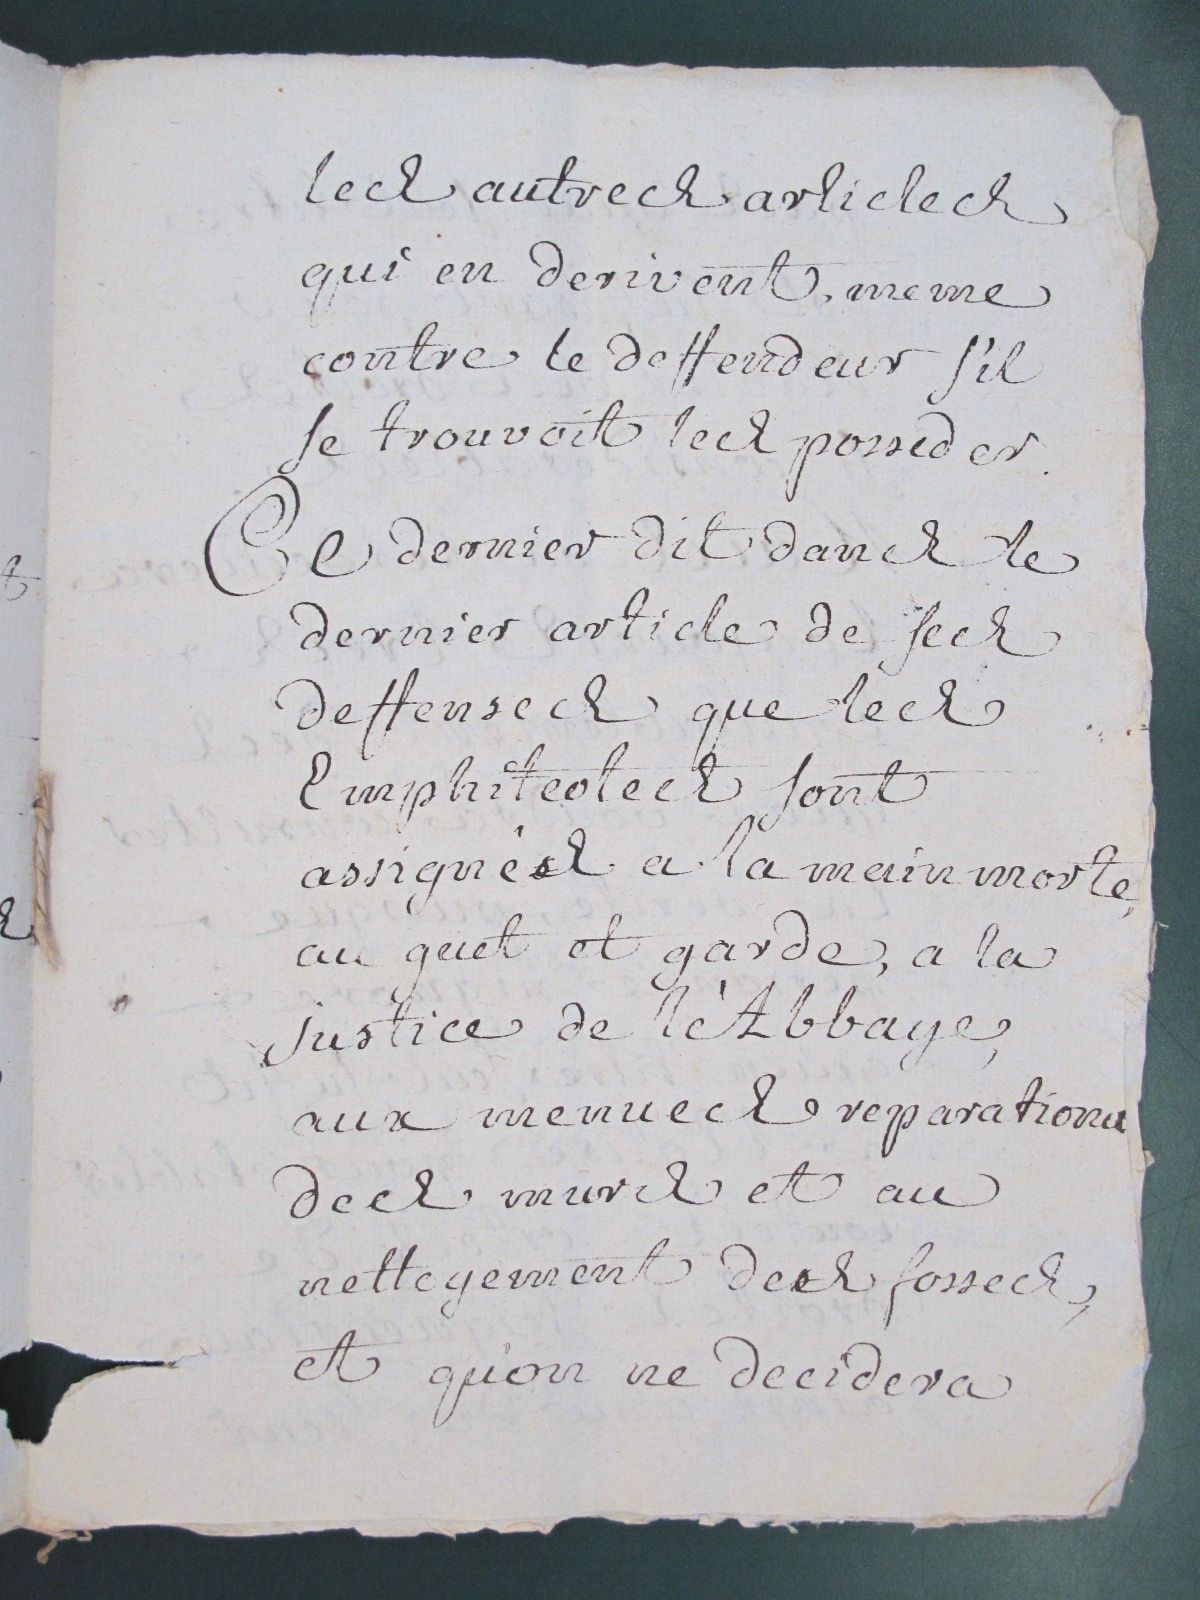 les autres articles
qui en derivent, meme
contre le deffendeur s'il
se trouvoit les posseder.
Ce dernier dit dans le
dernier article de ses
deffenses que les
Emphiteotes sont
assignés a la main morte,
au guet et garde, a la
justice de l'éAbbaye,
aux menues reparations
des murs et au
nettoyement des fosses,
et qu'on ne decidera